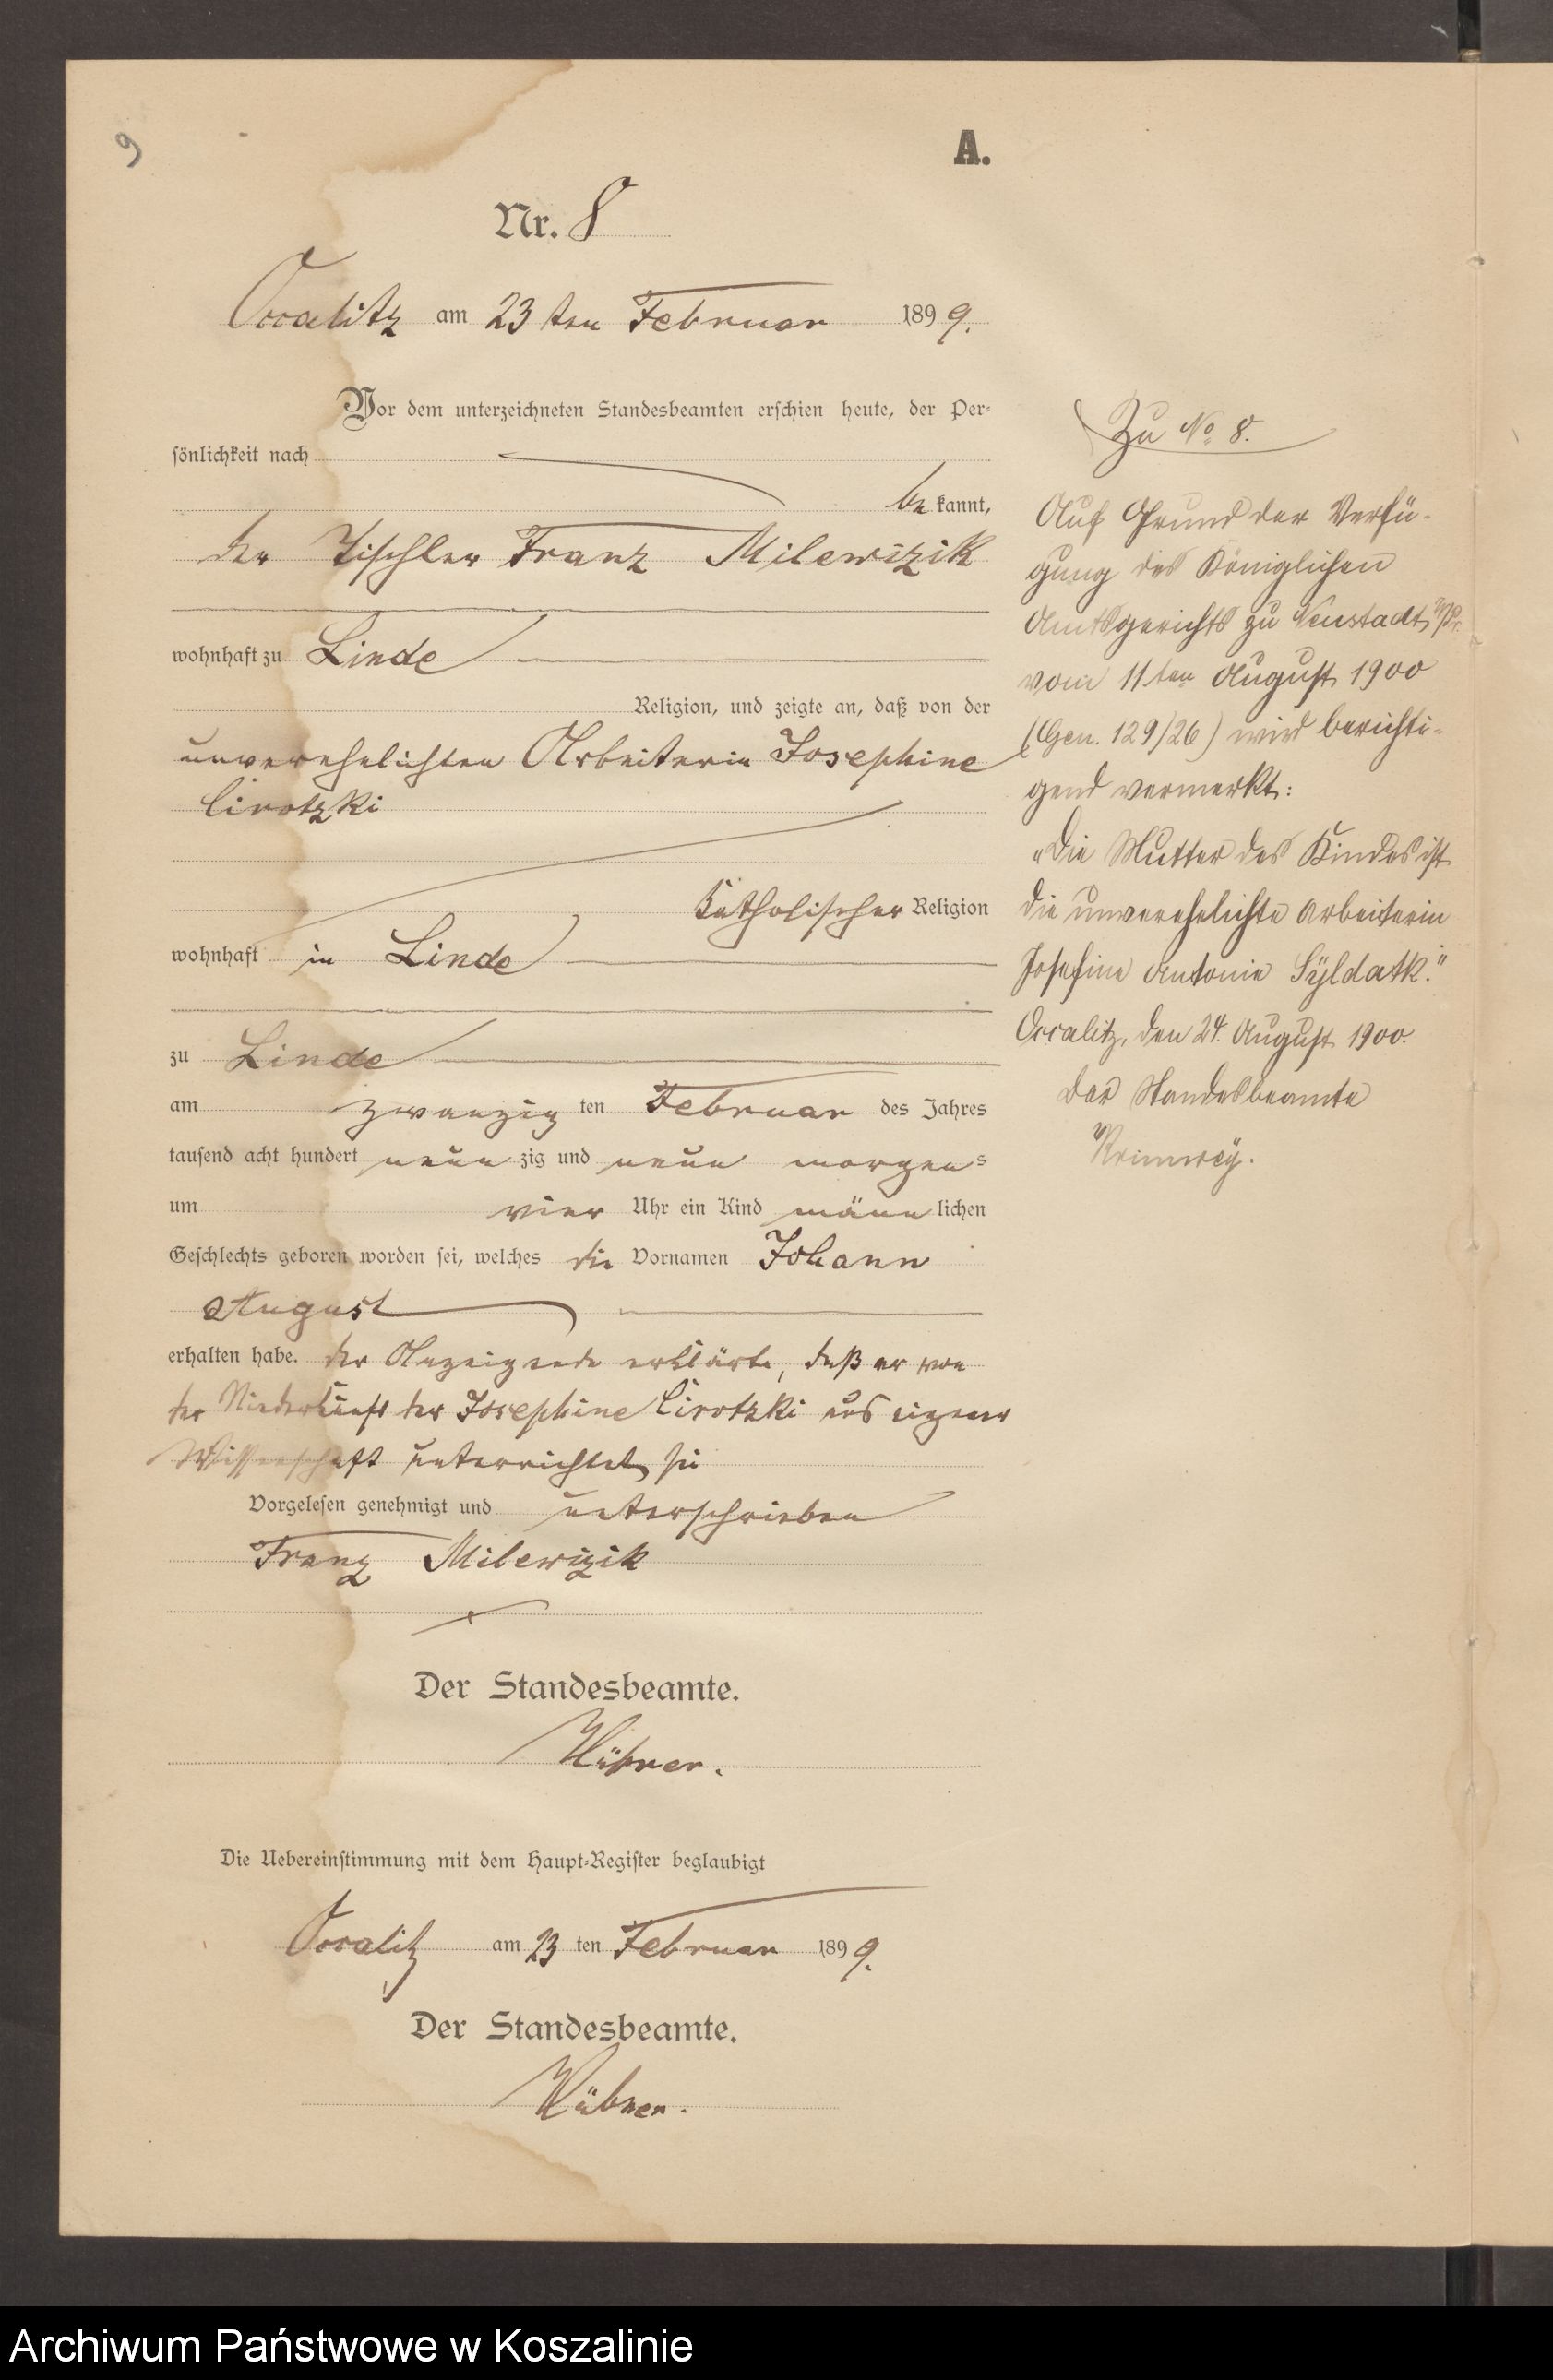 9
A.
Nr. 8
Occalitz am 23ten Februar 1899.
Vor dem unterzeichneten Standesbeamten erschien heute, der Per-
sönlichkeit nach
be kannt,
der Tischler Franz Milewizik
wohnhaft zu Linde
Religion, und zeigte an, daß von der
unverehelichten Arbeiterin Josephine
Cirotzki
katholischer Religion
wohnhaft in Linde
zu Linde
am zwanzig ten Februar des Jahres
tausend acht hundert neun zig und neun morgens
um vier Uhr ein Kind männ lichen
Geschlechts geboren worden sei, welches die Vornamen Johann
August
erhalten habe. der Anzeigende erklärte, daß er von
der Niederkunft der Josephine Cirotzki aus eigener
Wissenschaft unterrichtet sei
Vorgelesen genehmigt und unterschrieben
Franz Milewizik
Der Standesbeamte.
Hübner.
Die Uebereinstimmung mit dem Haupt-Register beglaubigt
Occalitz am 23 ten Februar 1899.
Der Standesbeamte.
Hübner.
Zu No 8.
Auf Grund der Verfü-
gung des Königlichen
Amtsgerichts zu Neustadt W/Pr.
vom 11ten August 1900
(Gen. 129/26) wird berichti-
gend vermerkt:
"Die Mutter des Kindes ist
die unverehelichte Arbeiterin
Josefine Antonie Syldatk."
Occalitz, den 24. August 1900.
Der Standesbeamte
Archiwum Państwowe w Koszalinie